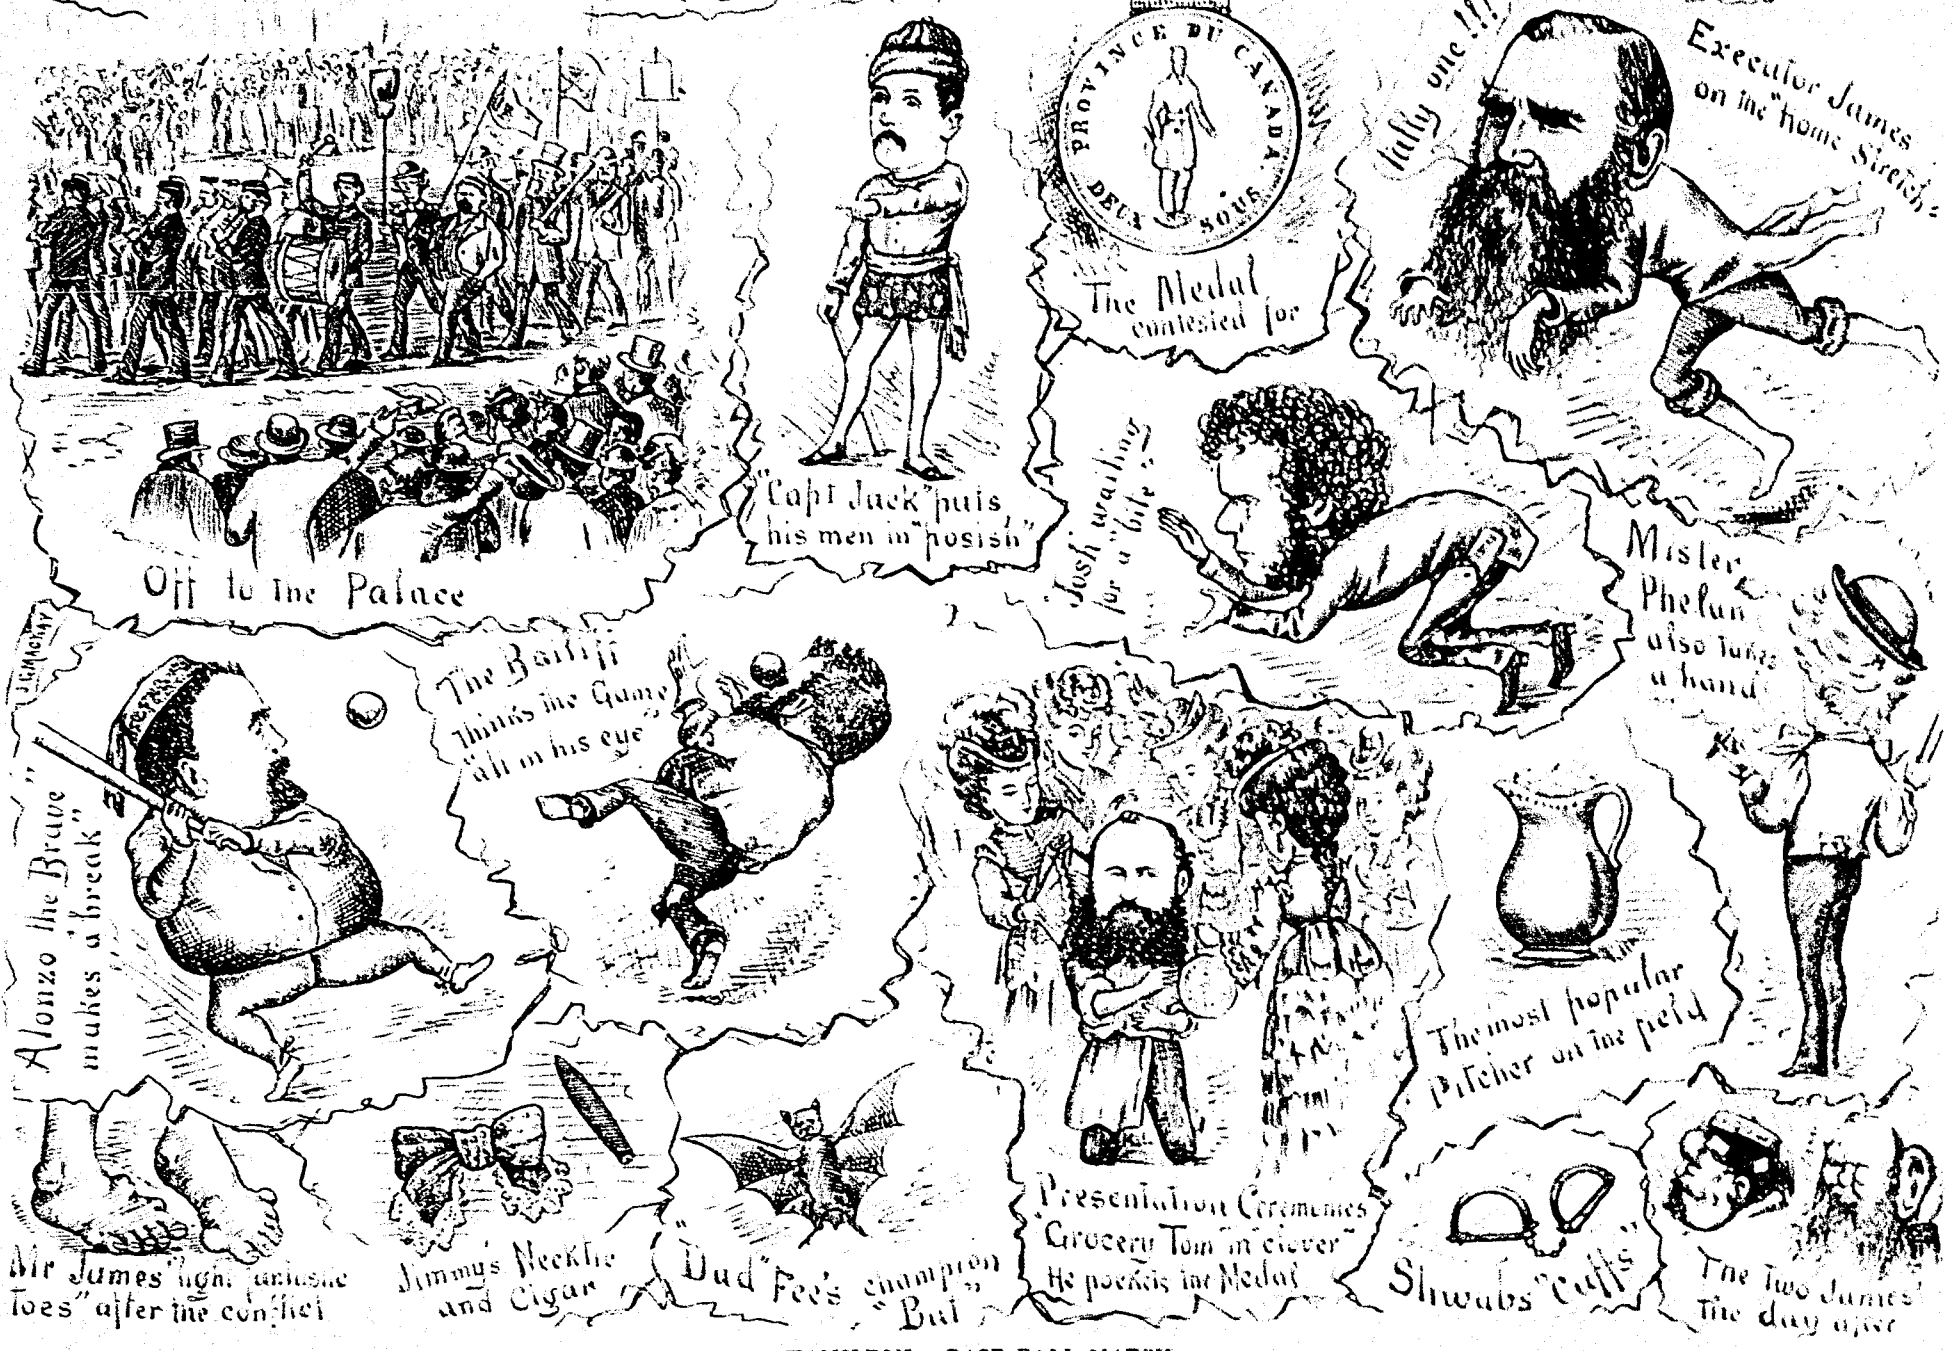 Off to the Palace
"Capt Jack" puts
his men in "posish"
PROVINCE DU CANADA
DEUX SOUS
The Medal
contested for
tally one!!!
Executor James
on the "home Stretch"
"Josh" waiting
for a "bite"
Mister
Phelan
also takes
a hand
"Alonzo the Brave"
makes a "break"
The Bailiff
thinks the Game
"all in his eye"
The most popular
Pitcher on the field
Mr James' "light
Toes" after the conflict
Jimmy's Necktie
and Cigar
"Dud" Fee's champion
"Bat"
Presentation Ceremonies
"Grocery Tom" in "clover"
He pockets the Medal
Shwabs "Cuffs"
The Two James'
The day after